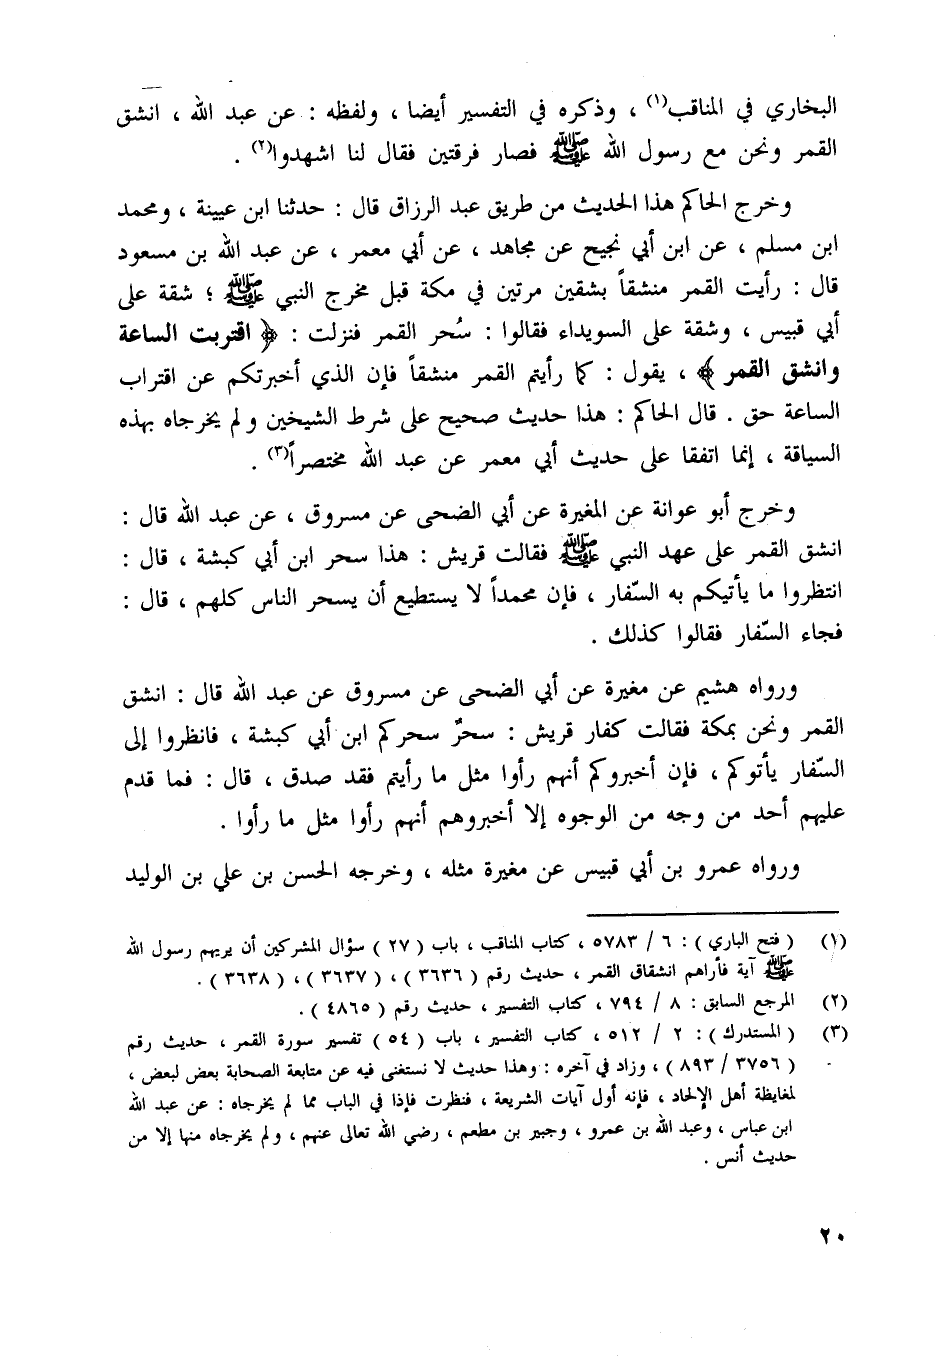 البخاري في المناقب(١) ، وذكره في التفسير أيضا ، ولفظه : عن عبد الله ، انشق
القمر ونحن مع رسول الله ﷺ فصار فرقتين فقال لنا اشهدوا(٢) .
وخرج الحاكم هذا الحديث من طريق عبد الرزاق قال : حدثنا ابن عيينة ، ومحمد
ابن مسلم ، عن ابن أبي نجيح عن مجاهد ، عن أبي معمر ، عن عبد الله بن مسعود
قال : رأيت القمر منشقاً بشقين مرتين في مكة قبل مخرج النبي ﷺ ؛ شقة على
أبي قبيس ، وشقة على السويداء فقالوا : سُحر القمر فنزلت : ﴿ اقتربت الساعة
وانشق القمر ﴾ ، يقول : كما رأيتم القمر منشقاً فإن الذي أخبرتكم عن اقتراب
الساعة حق . قال الحاكم : هذا حديث صحيح على شرط الشيخين ولم يخرجاه بهذه
السياقة ، إنما اتفقا على حديث أبي معمر عن عبد الله مختصراً(٣) .
وخرج أبو عوانة عن المغيرة عن أبي الضحى عن مسروق ، عن عبد الله قال :
انشق القمر على عهد النبي ﷺ فقالت قريش : هذا سحر ابن أبي كبشة ، قال :
انتظروا ما يأتيكم به السّفار ، فإن محمداً لا يستطيع أن يسحر الناس كلهم ، قال :
فجاء السّفار فقالوا كذلك .
ورواه هشيم عن مغيرة عن أبي الضحى عن مسروق عن عبد الله قال : انشق
القمر ونحن بمكة فقالت كفار قريش : سحرٌ سحركم ابن أبي كبشة ، فانظروا إلى
السّفار يأتوكم ، فإن أخبروكم أنهم رأوا مثل ما رأيتم فقد صدق ، قال : فما قدم
عليهم أحد من وجه من الوجوه إلا أخبروهم أنهم رأوا مثل ما رأوا .
ورواه عمرو بن أبي قبيس عن مغيرة مثله ، وخرجه الحسن بن علي بن الوليد
(١) ( فتح الباري ) : ٦ / ٥٧٨٣ ، كتاب المناقب ، باب ( ٢٧ ) سؤال المشركين أن يريهم رسول الله
ﷺ آية فأراهم انشقاق القمر ، حديث رقم ( ٣٦٣٦ ) ، ( ٣٦٣٧ ) ، ( ٣٦٣٨ ) .
(٢) المرجع السابق : ٨ / ٧٩٤ ، كتاب التفسير ، حديث رقم ( ٤٨٦٥ ) .
(٣) ( المستدرك ) : ٢ / ٥١٢ ، كتاب التفسير ، باب ( ٥٤ ) تفسير سورة القمر ، حديث رقم
( ٣٧٥٦ / ٨٩٣ ) ، وزاد في آخره : وهذا حديث لا نستغنى فيه عن متابعة الصحابة بعض لبعض ،
لمغايظة أهل الإلحاد ، فإنه أول آيات الشريعة ، فنظرت فإذا في الباب مما لم يخرجاه : عن عبد الله
ابن عباس ، وعبد الله بن عمرو ، وجبير بن مطعم ، رضي الله تعالى عنهم ، ولم يخرجاه منها إلا من
حديث أنس .
٢٠